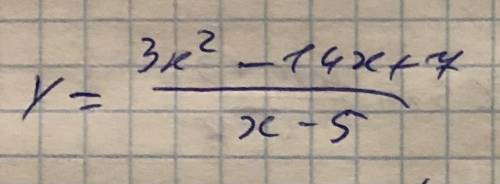 y = (3x² - 14x + 7) / (x - 5)